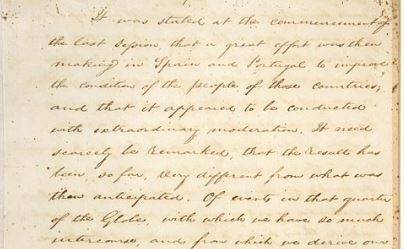 It was stated at the commencement of
the last session, that a great effort was then
making in Spain and Portugal to improve
the condition of the people of those countries;
and that it appeared to be conducted
with extraordinary moderation. It need
scarcely be remarked, that the result has
been, so far, very different from what was
then anticipated. Of events in that quarter
of the Globe, with which we have so much
intercourse, and from which we derive our